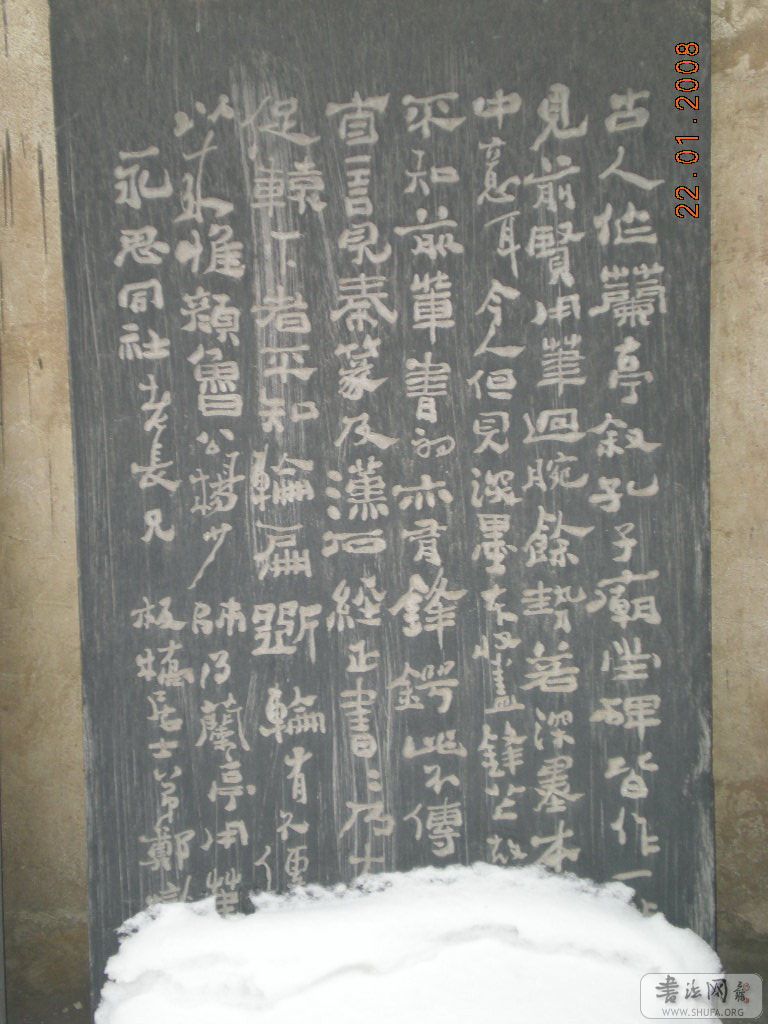 古人作蘭亭叙孔子廟堂碑皆作一
見前賢用筆迴腕餘勢若深墨本
中意耳今人但見深墨本收盡鋒芒故
不知前輩書初亦有鋒鍔此不傳
直言見秦篆及漢石經正書二乃
促轅下者不知輪扁斲輪有不傳
以來惟顔魯公楊少師得蘭亭用筆
永思同社老長兄 板橋居士弟鄭
22.01.2008
書法网
WWW.SHUFA.ORG